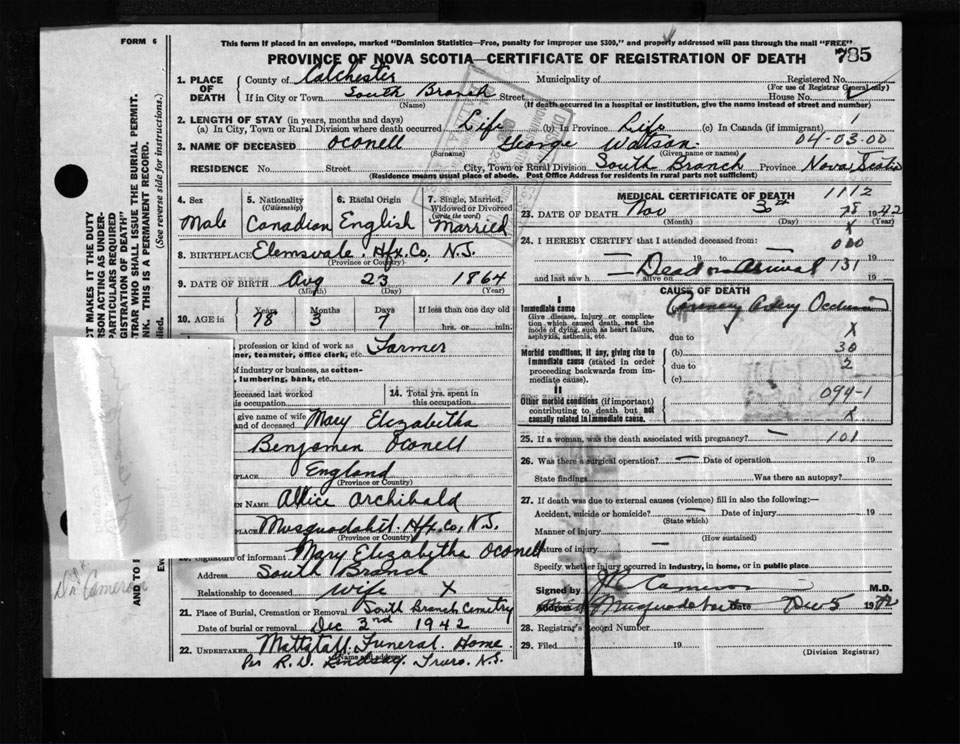 FORM 6
This form if placed in an envelope, marked "Dominion Statistics—Free, penalty for improper use $300," and properly addressed will pass through the mail "FREE"
PROVINCE OF NOVA SCOTIA—CERTIFICATE OF REGISTRATION OF DEATH
785
1. PLACE OF DEATH
County of Colchester
Municipality of
Registered No.
(For use of Registrar General only)
If in City or Town South Branch Street House No.
(Name) (If death occurred in a hospital or institution, give the name instead of street and number)
2. LENGTH OF STAY (in years, months and days)
(a) In City, Town or Rural Division where death occurred Life (b) In Province Life (c) In Canada (if immigrant)
3. NAME OF DECEASED Oconell George Watson 04-03-00
(Surname) (Given name or names)
RESIDENCE No. Street City, Town or Rural Division South Branch Province Nova Scotia
(Residence means usual place of abode. Post Office Address for residents in rural parts not sufficient)
4. Sex Male
5. Nationality (Citizenship) Canadian
6. Racial Origin English
7. Single, Married, Widowed or Divorced (write the word) Married
8. BIRTHPLACE Elemsvale. Hfx. Co, N.S.
(Province or Country)
9. DATE OF BIRTH Aug 23 1864
(Month) (Day) (Year)
10. AGE in Years Months Days If less than one day old
78 3 7 hrs. or min.
profession or kind of work as
ner, teamster, office clerk, etc. Farmer
of industry or business, as cotton-
, lumbering, bank, etc.
deceased last worked
is occupation
14. Total yrs. spent in this occupation
give name of wife
and of deceased Mary Elizabetha
Benjamen Oconell
PLACE England
(Province or Country)
EN NAME Allice Archibald
PLACE Musquodobit. Hfx. Co, N.S.
(Province or Country)
Signature of informant Mary Elizabetha Oconell
Address South Branch
Relationship to deceased Wife X
21. Place of Burial, Cremation or Removal South Branch Cemetry
Date of burial or removal Dec 3rd 1942
22. UNDERTAKER Mattatall Funeral Home
(Name and address)
Per R.D. Lindsay. Truro. N.S.
MEDICAL CERTIFICATE OF DEATH 1112
23. DATE OF DEATH Nov 30th 1942
(Month) (Day) 78
24. I HEREBY CERTIFY that I attended deceased from:
000
19 to 19
and last saw h alive on Dead on Arrival 131 19
CAUSE OF DEATH
I
Immediate cause
Give disease, injury or complication which caused death, not the mode of dying, such as heart failure, asphyxia, asthenia, etc.
Coronary Artery Occlusion
due to X
Morbid conditions, if any, giving rise to immediate cause (stated in order proceeding backwards from immediate cause).
(b) 30
due to 2
(c)
II
Other morbid conditions (if important) contributing to death but not causally related to immediate cause.
094-1
X
25. If a woman, was the death associated with pregnancy? — 101
26. Was there a surgical operation? — Date of operation 19
State findings Was there an autopsy?
27. If death was due to external causes (violence) fill in also the following:—
Accident, suicide or homicide? — Date of injury 19
(State which)
Manner of injury
(How sustained)
Nature of injury —
Specify whether injury occurred in industry, in home, or in public place
Signed by Cameron M.D.
Address Musquodoboit Date Dec 5 1942
28. Registrar's Record Number
29. Filed 19
(Division Registrar)
CT MAKES IT THE DUTY
RSON ACTING AS UNDER-
PARTICULARS REQUIRED
GISTRATION OF DEATH"
TRAR WHO SHALL ISSUE THE BURIAL PERMIT.
NK. THIS IS A PERMANENT RECORD.
(See reverse side for instructions.)
plied.
AND TO I
Dr. Cameron